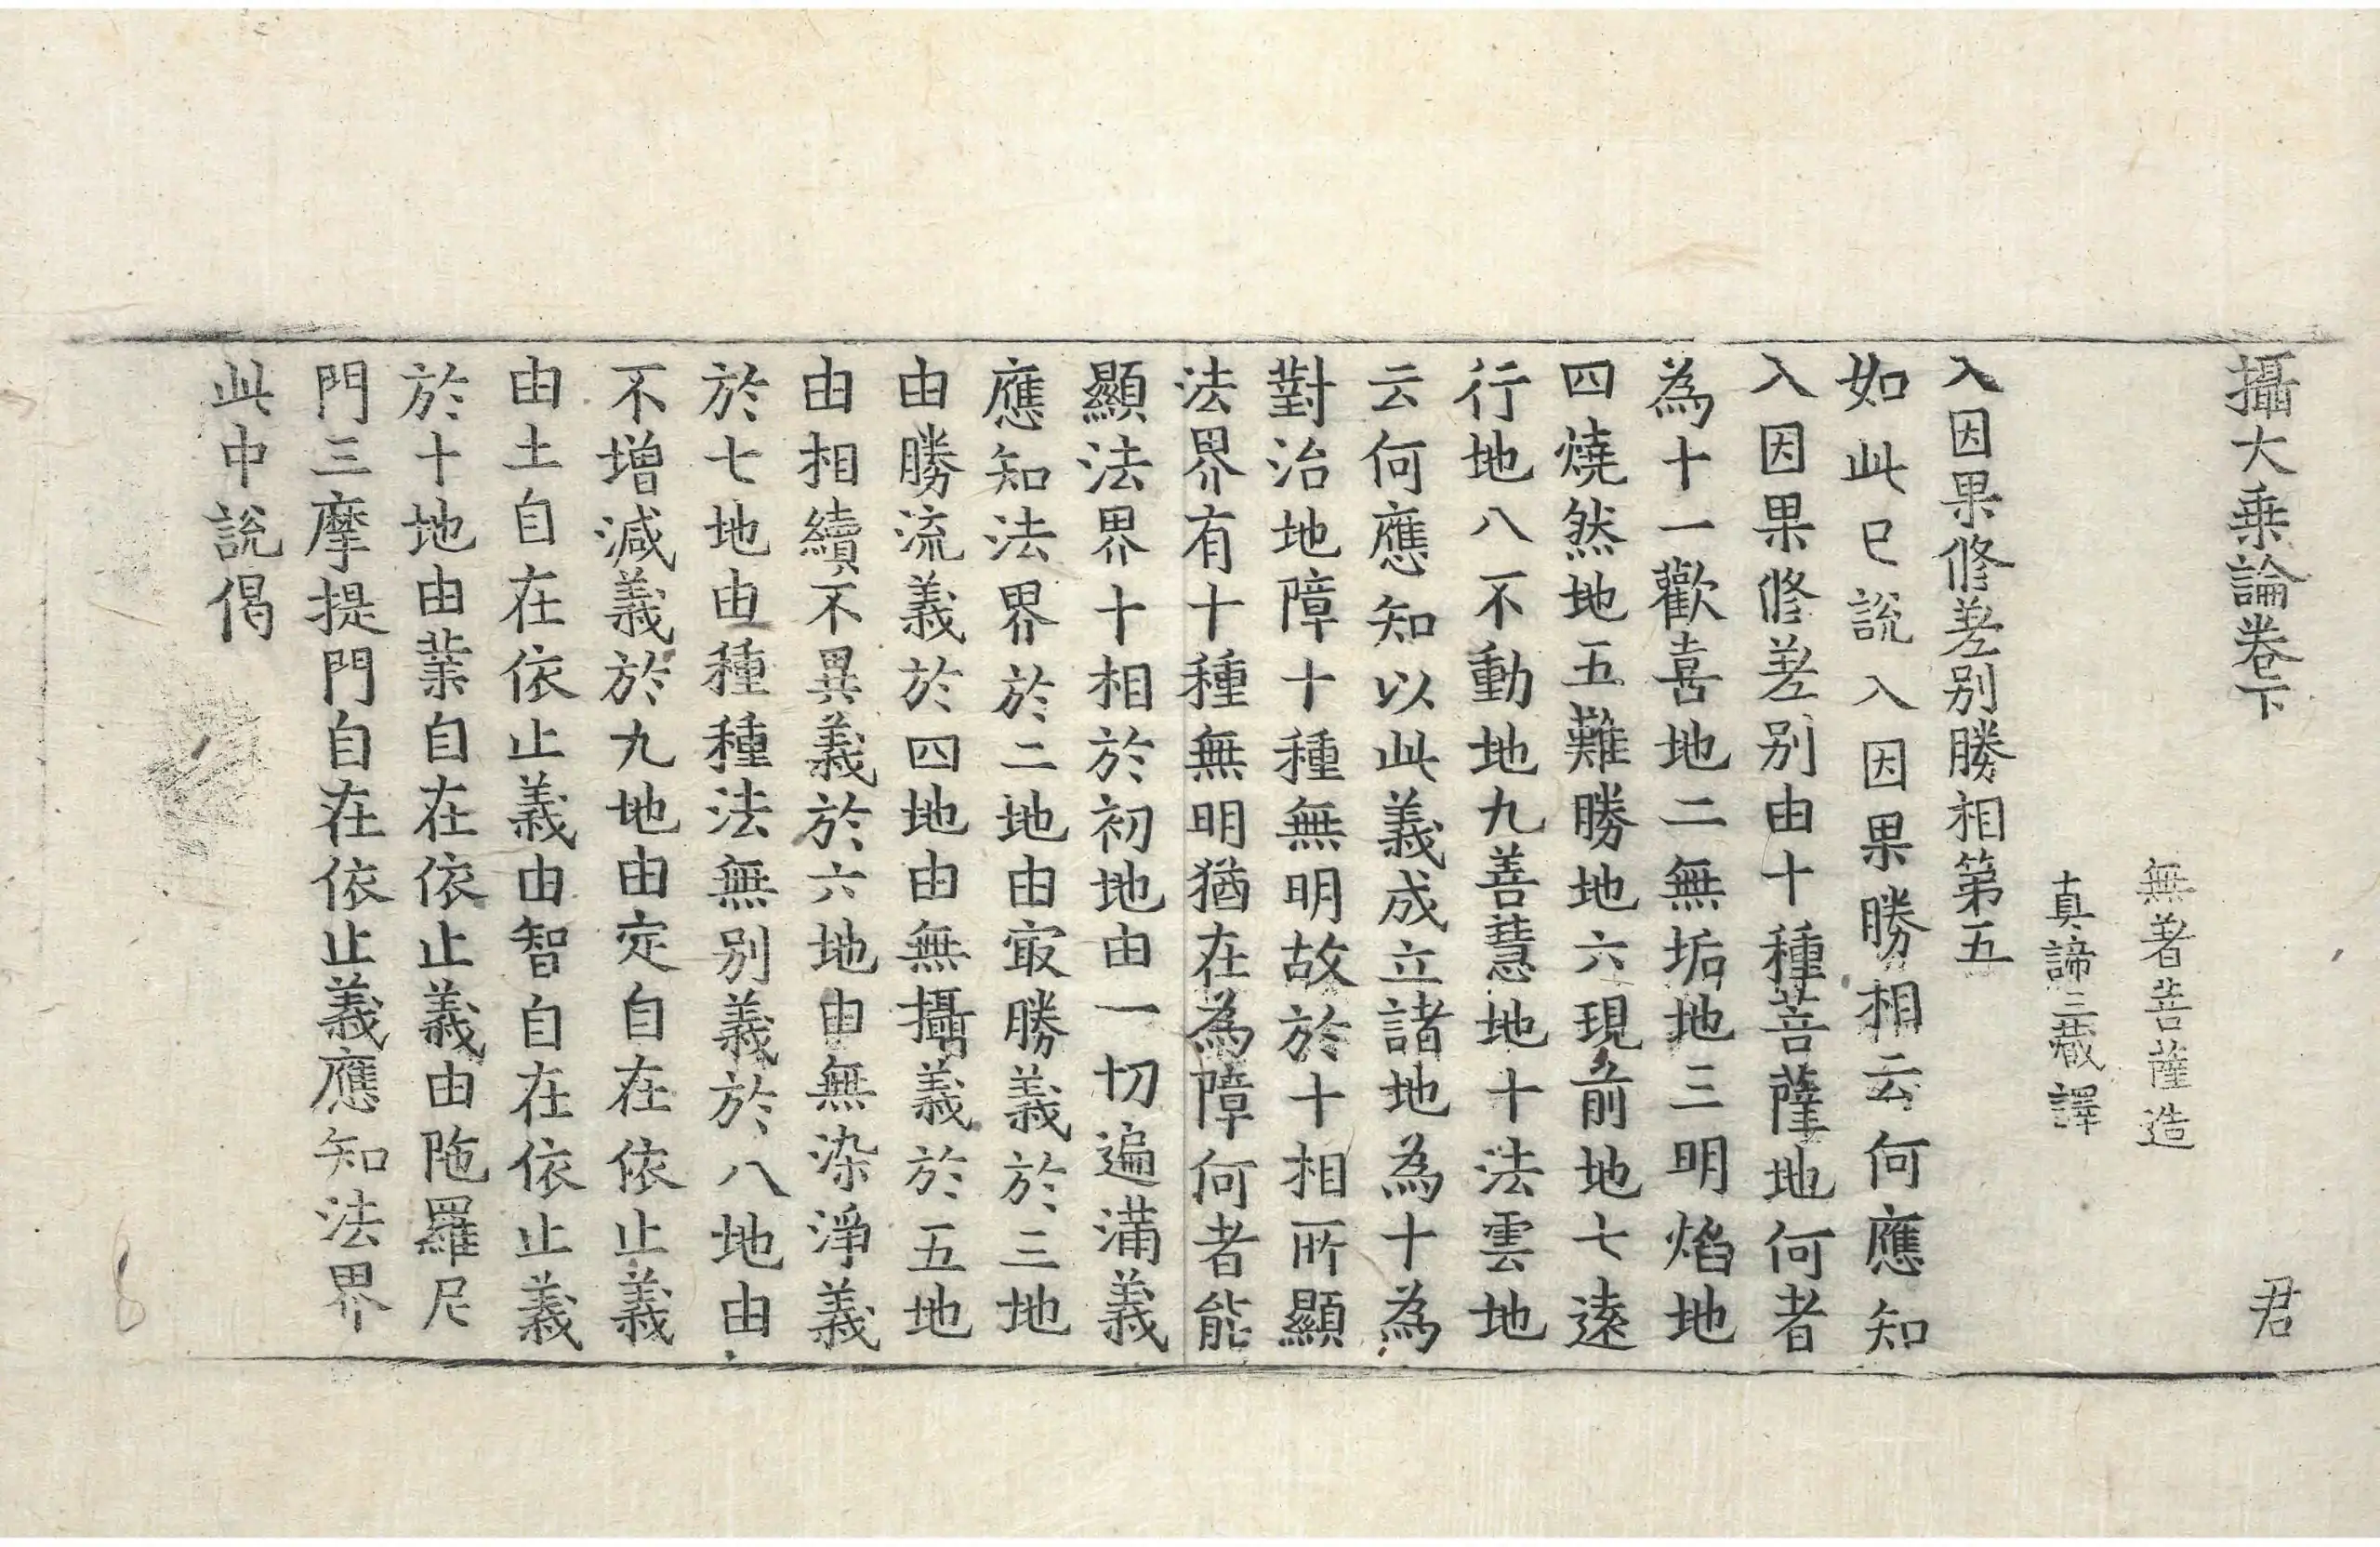 攝大乗論卷下 君
無著菩薩造
真諦三藏譯
入因果修差别勝相第五
如此已說入因果勝相云何應知
入因果修差别由十種菩薩地何者
為十一歡喜地二無垢地三明焰地
四燒然地五難勝地六現前地七遠
行地八不動地九善慧地十法雲地
云何應知以此義成立諸地為十為
對治地障十種無明故於十相所顯
法界有十種無明猶在為障何者能
顯法界十相於初地由一切遍滿義
應知法界於二地由㝡勝義於三地
由勝流義於四地由無攝義於五地
由相續不異義於六地由無染淨義
於七地由種種法無别義於八地由
不增減義於九地由定自在依止義
由土自在依止義由智自在依止義
於十地由業自在依止義由陁羅尼
門三摩提門自在依止義應知法界
此中說偈
8